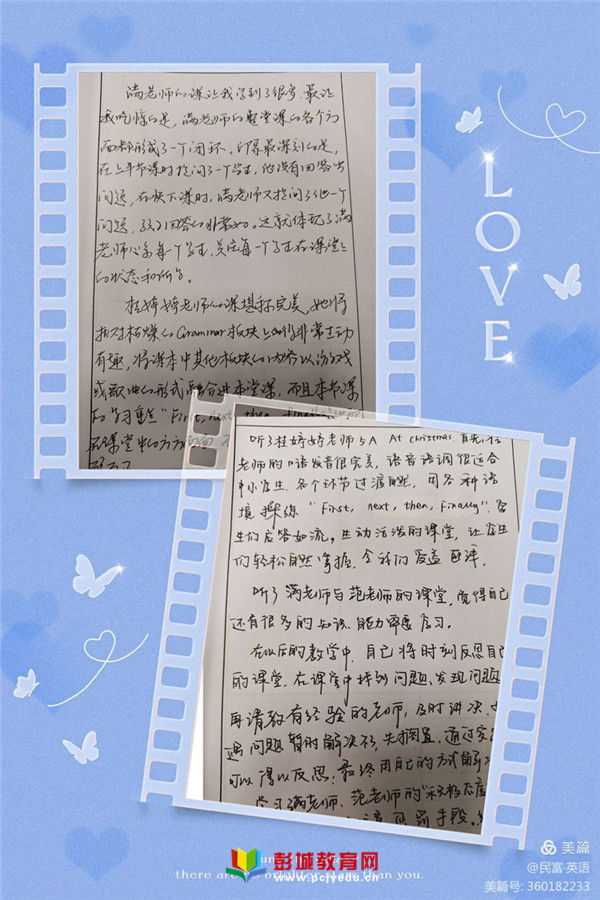 满老师的课让我学到了很多,最让
我吃惊的是,满老师的整堂课的各个方
面都形成了一个闭环。印象最深刻的是,
在上半节课时提问了一个学生,他没有回答出
问题,在快下课时,满老师又提问了他一个
问题,孩子回答的非常好。这就体现了满
老师心系每一个学生,关注每一个学生在课堂上
的状态和所学。
桂婷婷老师的课堪称完美,她将
相对枯燥的Grammar板块上的非常生动
有趣,将课本中其他板块的内容以游戏
或歌曲的形式融合进本堂课,而且本节课
的学习重点"First, next, then,
在课堂中的方方面面
听了桂婷婷老师5A At christmas.首先,桂
老师的口语发音很完美,语音语调很适合
小学生.各个环节过渡自然,用各种语
境操练"First, next, then, finally".学
生们应答如流,生动活泼的课堂,让学生
们轻松自然掌握.令我们受益匪浅.
听了满老师与范老师的课堂,觉得自己
还有很多的知识、能力需要学习。
在以后的教学中,自己将时刻反思自己
的课堂,在课堂中找到问题、发现问题
再请教有经验的老师,及时讲决,
遇问题暂时解决不了,先搁置,通过
可以得以反思,最终用自己的方式解决
学习满老师、范老师的"积极态度
手段.
LOVE
彭城教育网
www.pcjyedu.cn
there are brighter stars than you.
美篇
@民富·英语
美篇号: 360182233